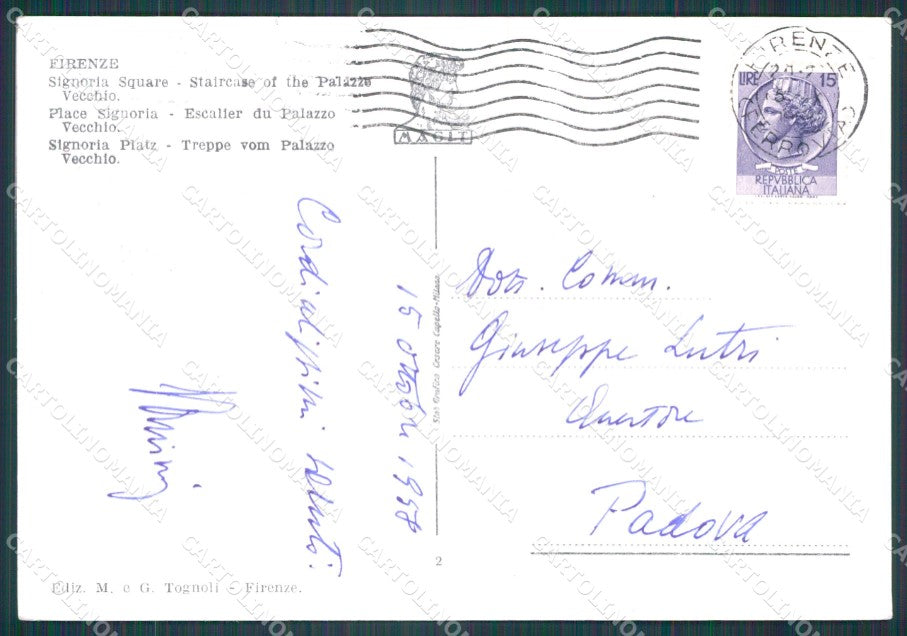 FIRENZE
Signoria Square - Staircase of the Palazze
Vecchio.
Place Signoria - Escalier du Palazzo
Vecchio.
Signoria Platz - Treppe vom Palazzo
Vecchio.
FIRENZE
FERROVIA
LIRE 15
POSTE
REPVBBLICA
ITALIANA
Cordialissimi saluti.
15 ottobre 1958
Dott. Comm.
Giuseppe Lutri
Questore
Padova
Stab. Grafico Cesare Capello-Milano
2
Ediz. M. e G. Tognoli - Firenze.
CARTOLINOMANIA